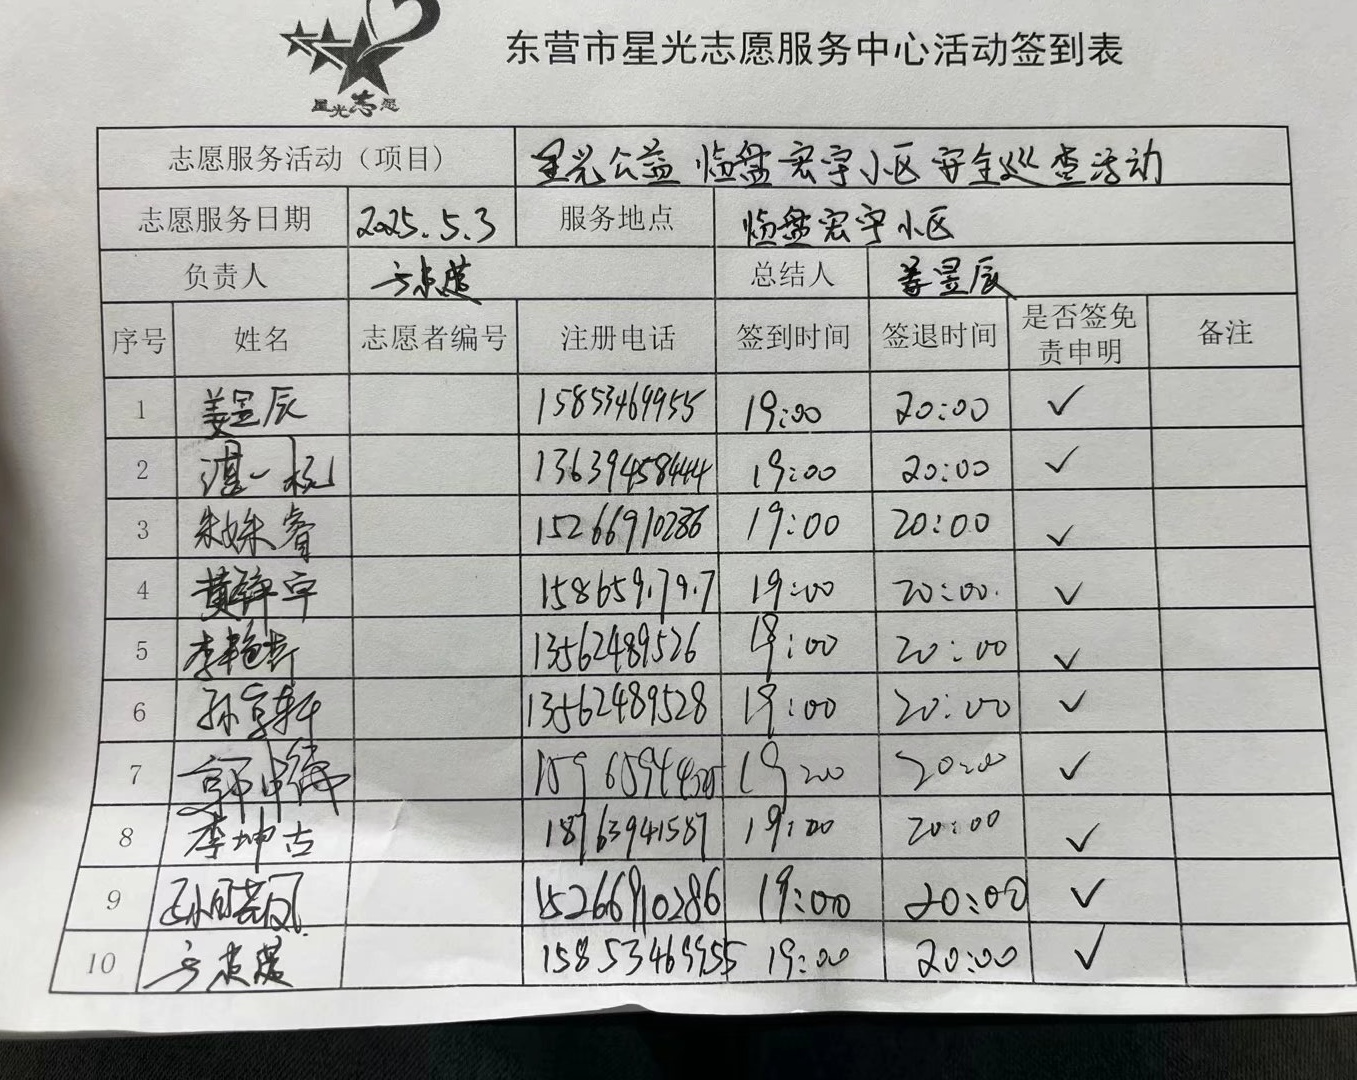 星光志愿
东营市星光志愿服务中心活动签到表
志愿服务活动（项目） 星光公益 临盘宏宇小区安全巡查活动
志愿服务日期 2025.5.3 服务地点 临盘宏宇小区
负责人 总结人 姜昱辰
序号 姓名 志愿者编号 注册电话 签到时间 签退时间 是否签免责申明 备注
1 姜昱辰 15853469955 19:00 20:00 ✓
2 13639458444 19:00 20:00 ✓
3 朱姝睿 15266910286 19:00 20:00 ✓
4 158659.79.7 19:00 20:00. ✓
5 李艳 13562489526 19:00 20:00 ✓
6 13562489528 19:00 20:00 ✓
7 19:00 20:00 ✓
8 李坤古 18763941587 19:00 20:00 ✓
9 15266910286 19:00 20:00 ✓
10 15853469955 19:00 20:00 ✓